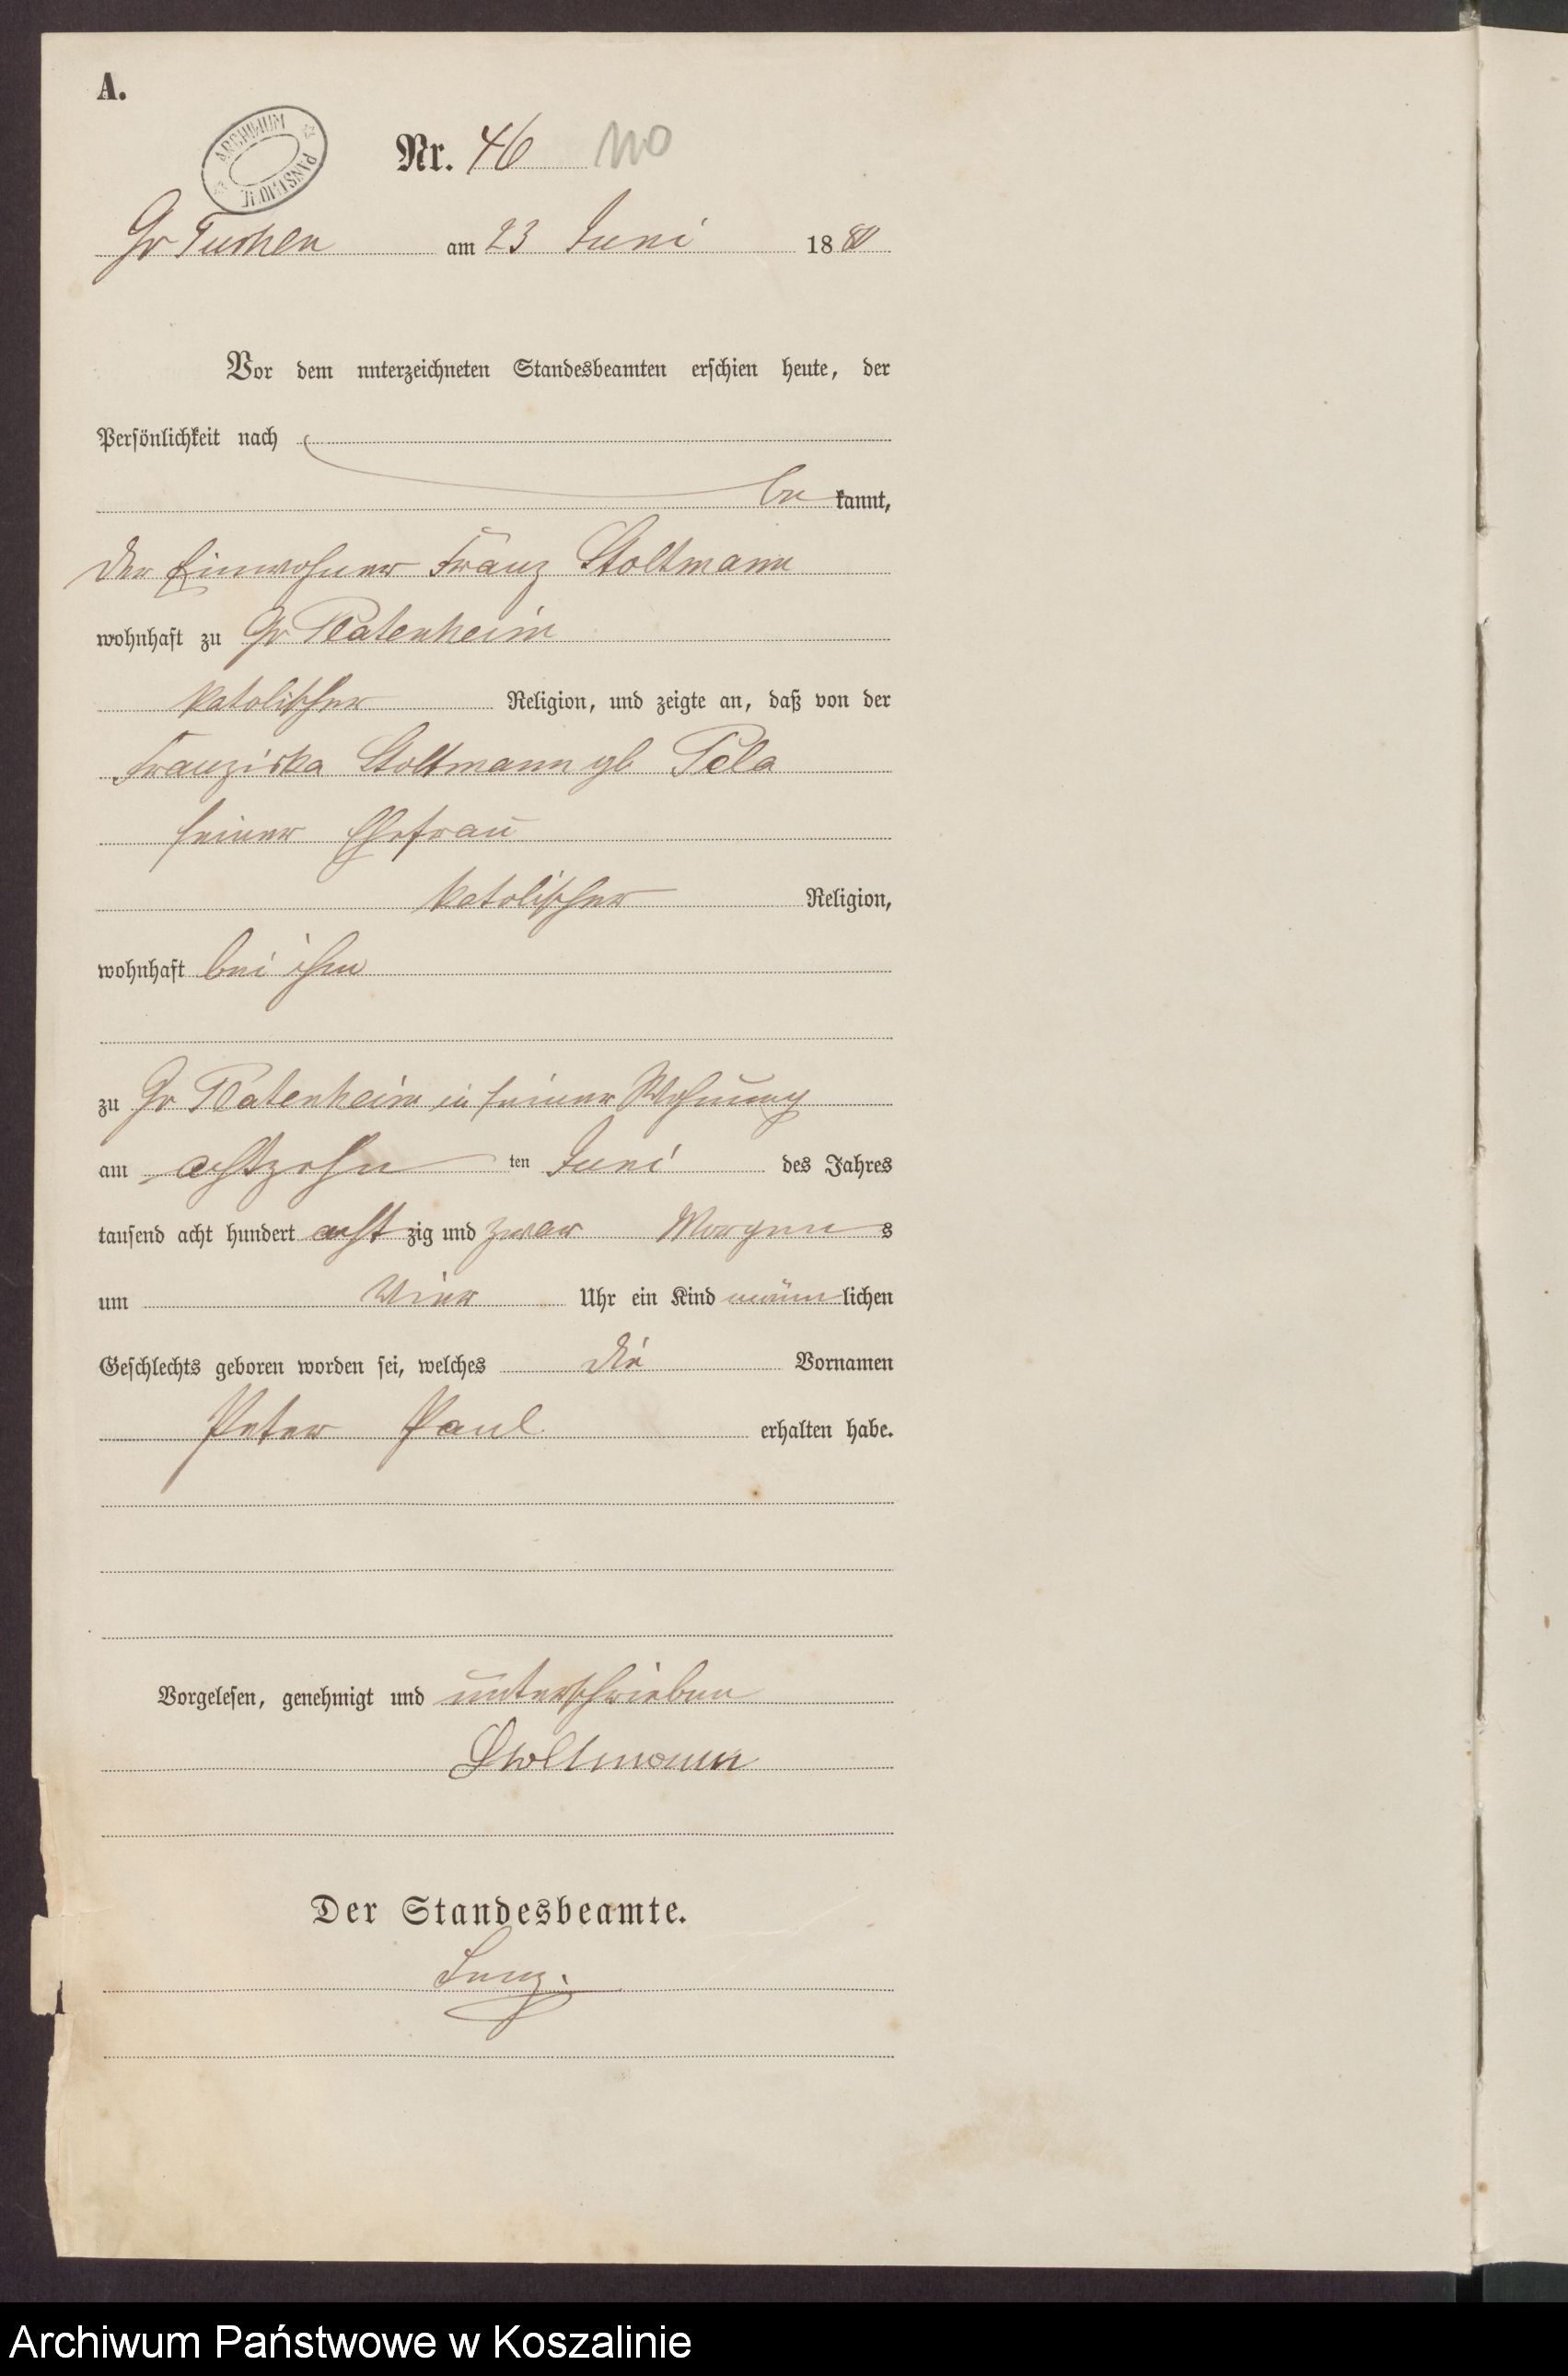 A.
ARCHIWUM PAŃSTWOWE
Nr. 46 110
Gr Tuchen am 23 Juni 1880
Vor dem unterzeichneten Standesbeamten erschien heute, der
Persönlichkeit nach
be kannt,
der Einwohner Franz Stoltmann
wohnhaft zu Gr Platenheim
katolischer Religion, und zeigte an, daß von der
Franziska Stoltmann gb Pela
seiner Ehefrau
katolischer Religion,
wohnhaft bei ihm
zu Gr Platenheim in seiner Wohnung
am achtzehn ten Juni des Jahres
tausend acht hundert acht zig und zwar Morgen s
um Vier Uhr ein Kind männ lichen
Geschlechts geboren worden sei, welches die Vornamen
Peter Paul erhalten habe.
Vorgelesen, genehmigt und unterschrieben
Stoltmann
Der Standesbeamte.
Archiwum Państwowe w Koszalinie